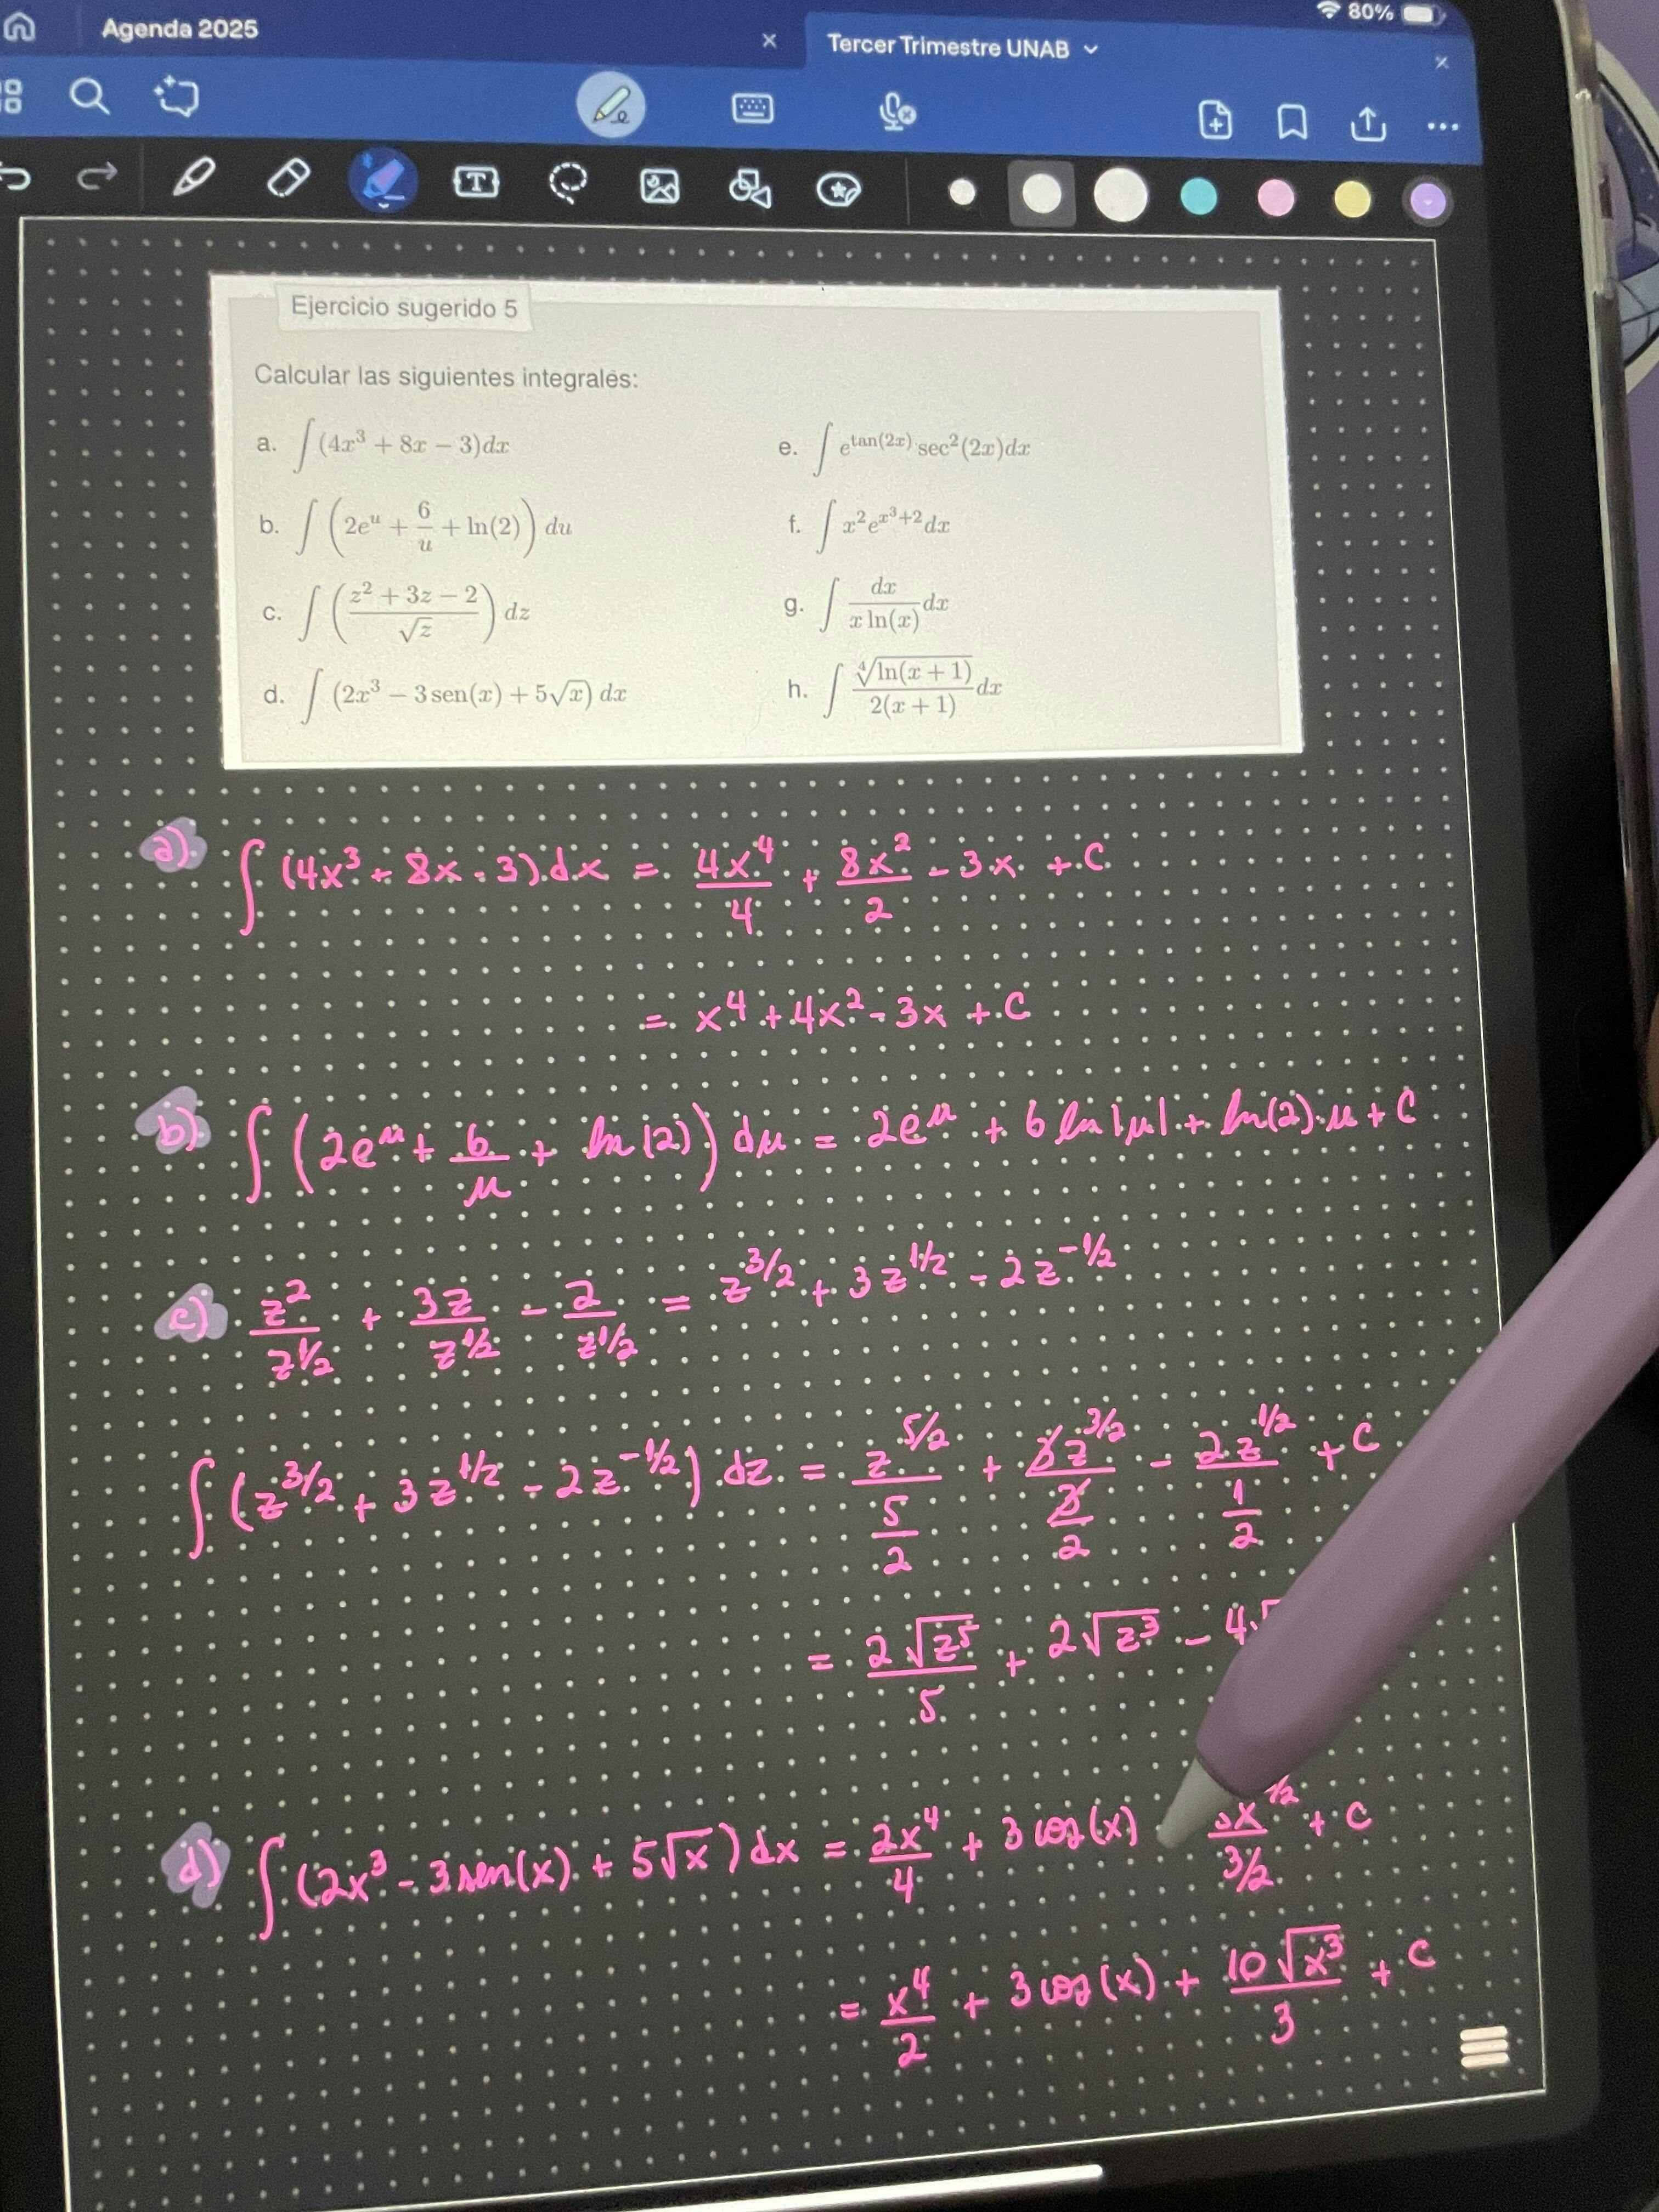 80%
Agenda 2025 × Tercer Trimestre UNAB ×
T
Ejercicio sugerido 5
Calcular las siguientes integrales:
a. ∫(4x³ + 8x − 3)dx
b. ∫(2eᵘ + 6/u + ln(2)) du
c. ∫((z² + 3z − 2)/√z) dz
d. ∫(2x³ − 3 sen(x) + 5√x) dx
e. ∫e^(tan(2x)) sec²(2x)dx
f. ∫x²e^(x³+2)dx
g. ∫dx/(x ln(x)) dx
h. ∫∜(ln(x + 1))/(2(x + 1)) dx
a) ∫(4x³ + 8x - 3) dx = 4x⁴/4 + 8x²/2 - 3x + C
= x⁴ + 4x² - 3x + C
b) ∫(2e^u + 6/u + ln(2)) du = 2e^u + 6 ln|u| + ln(2)·u + C
c) z²/z^(1/2) + 3z/z^(1/2) - 2/z^(1/2) = z^(3/2) + 3z^(1/2) - 2z^(-1/2)
∫(z^(3/2) + 3z^(1/2) - 2z^(-1/2)) dz = z^(5/2)/(5/2) + 3z^(3/2)/(3/2) - 2z^(1/2)/(1/2) + C
= 2√z⁵/5 + 2√z³ - 4√
d) ∫(2x³ - 3 sen(x) + 5√x) dx = 2x⁴/4 + 3 cos(x) x^(3/2)/(3/2) + C
= x⁴/2 + 3 cos(x) + 10√x³/3 + C